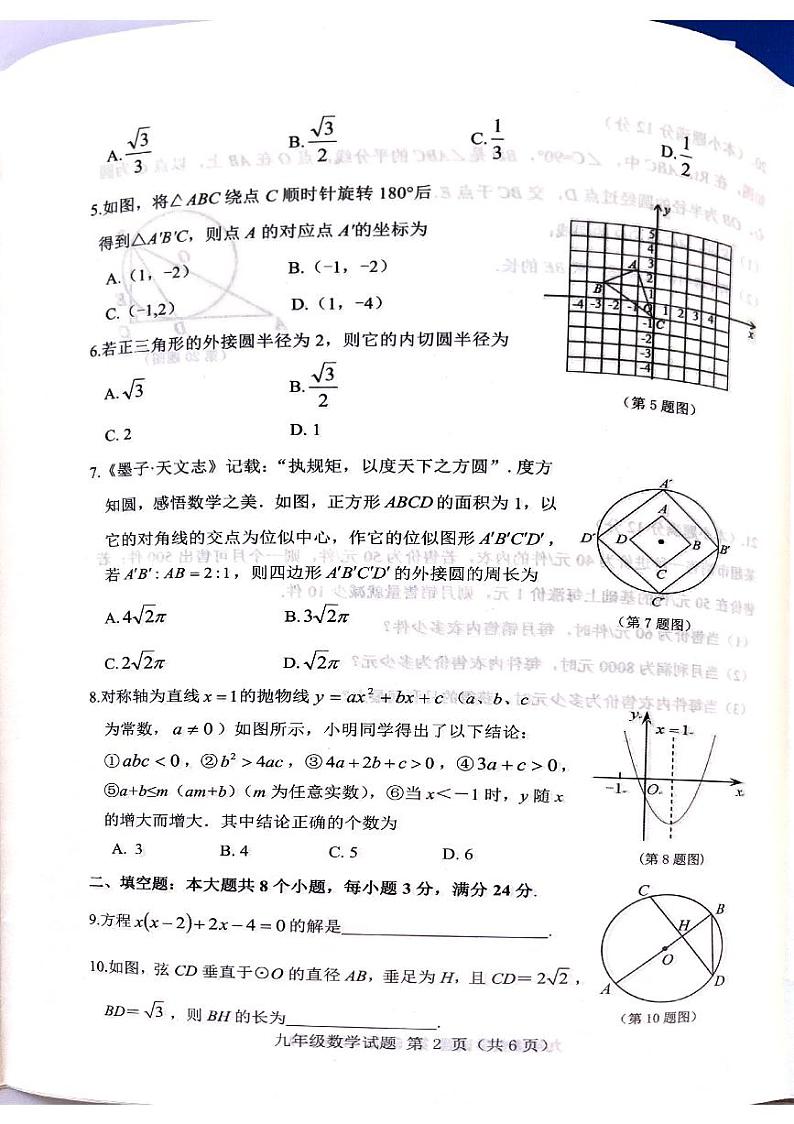 A. √3/3 B. √3/2 C. 1/3 D. 1/2
5.如图，将△ABC 绕点 C 顺时针旋转 180°后
得到△A′B′C，则点 A 的对应点 A′的坐标为
A.（1，-2） B.（-1，-2）
C.（-1,2） D.（1，-4）
（第 5 题图）
6.若正三角形的外接圆半径为 2，则它的内切圆半径为
A. √3 B. √3/2
C. 2 D. 1
7.《墨子·天文志》记载：“执规矩，以度天下之方圆”．度方
知圆，感悟数学之美．如图，正方形 ABCD 的面积为 1，以
它的对角线的交点为位似中心，作它的位似图形 A′B′C′D′，
若 A′B′:AB=2:1，则四边形 A′B′C′D′ 的外接圆的周长为
A. 4√2π B. 3√2π
C. 2√2π D. √2π
（第 7 题图）
8.对称轴为直线 x=1 的抛物线 y=ax²+bx+c（a、b、c
为常数，a≠0）如图所示，小明同学得出了以下结论：
①abc<0，②b²>4ac，③4a+2b+c>0，④3a+c>0，
⑤a+b≤m（am+b）（m 为任意实数），⑥当 x<－1 时，y 随 x
的增大而增大．其中结论正确的个数为
A. 3 B. 4 C. 5 D. 6
（第 8 题图）
二、填空题：本大题共 8 个小题，每小题 3 分，满分 24 分．
9.方程 x(x-2)+2x-4=0 的解是____________．
10.如图，弦 CD 垂直于⊙O 的直径 AB，垂足为 H，且 CD=2√2，
BD=√3，则 BH 的长为____________．
（第 10 题图）
九年级数学试题 第 2 页（共 6 页）